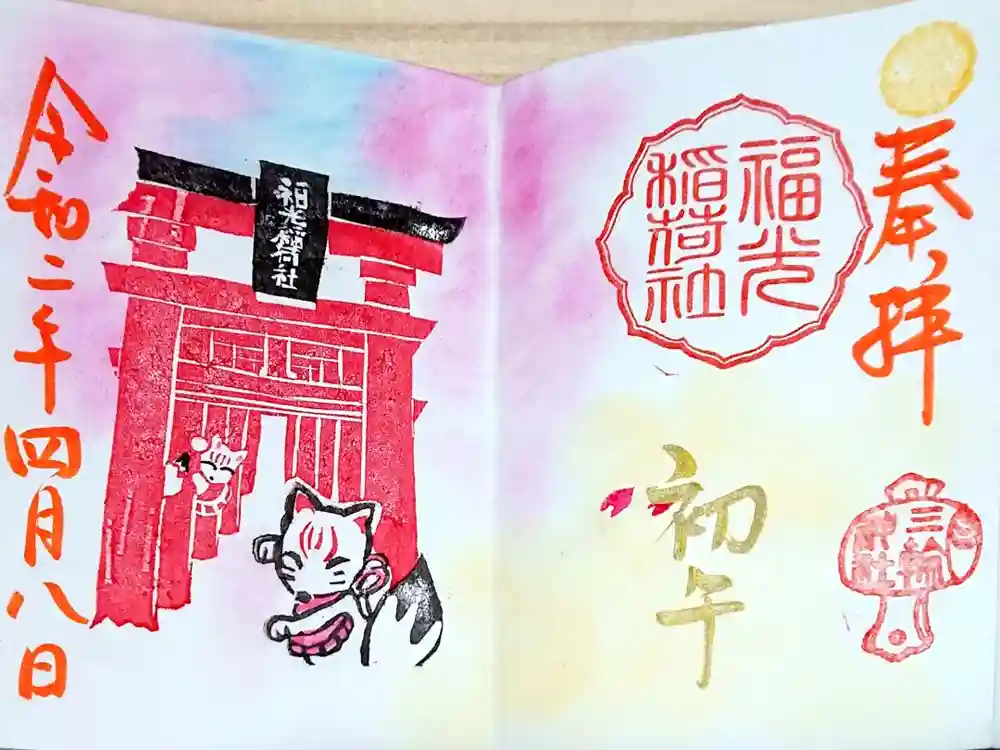 奉拝
福光
稲荷社
初午
三輪
神社
福光稲荷社
令和二年四月八日